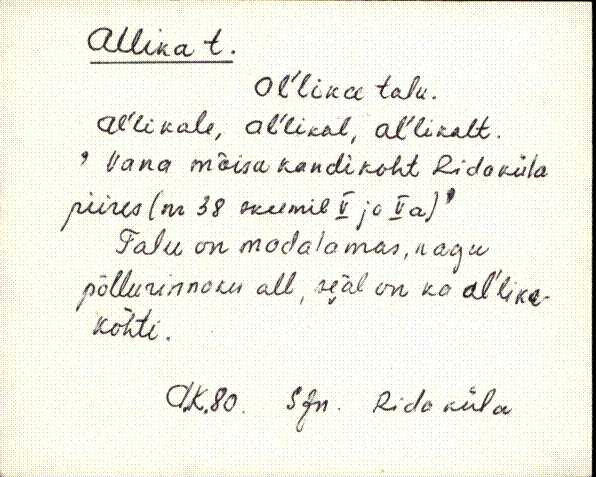 Allika t.
al'lika talu.
al'likale, al'likal, al'likalt.
" Vana mõisa kandikoht Ridaküla
piires (nr 38 skeemil V ja Va) "
Talu on madalamas, nagu
põllurinnaku all, sẹjal on ka al'lika-
kohti.
A.K.80. Sjn. Ridaküla